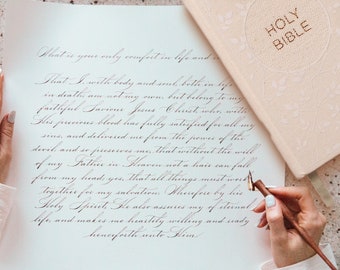 What is your only comfort in life and
That I with body and soul, both in life
in death, am not my own, but belong to my
faithful Saviour Jesus Christ who, with
His precious blood has fully satisfied for all my
sins, and delivered me from the power of the
devil and so preserves me that without the will
of my Father in Heaven not a hair can fall
from my head; yea, that all things must work
together for my salvation. Therefore by his
Holy Spirit He also assures me of eternal
life and makes me heartily willing and ready
henceforth unto Him.
HOLY
BIBLE